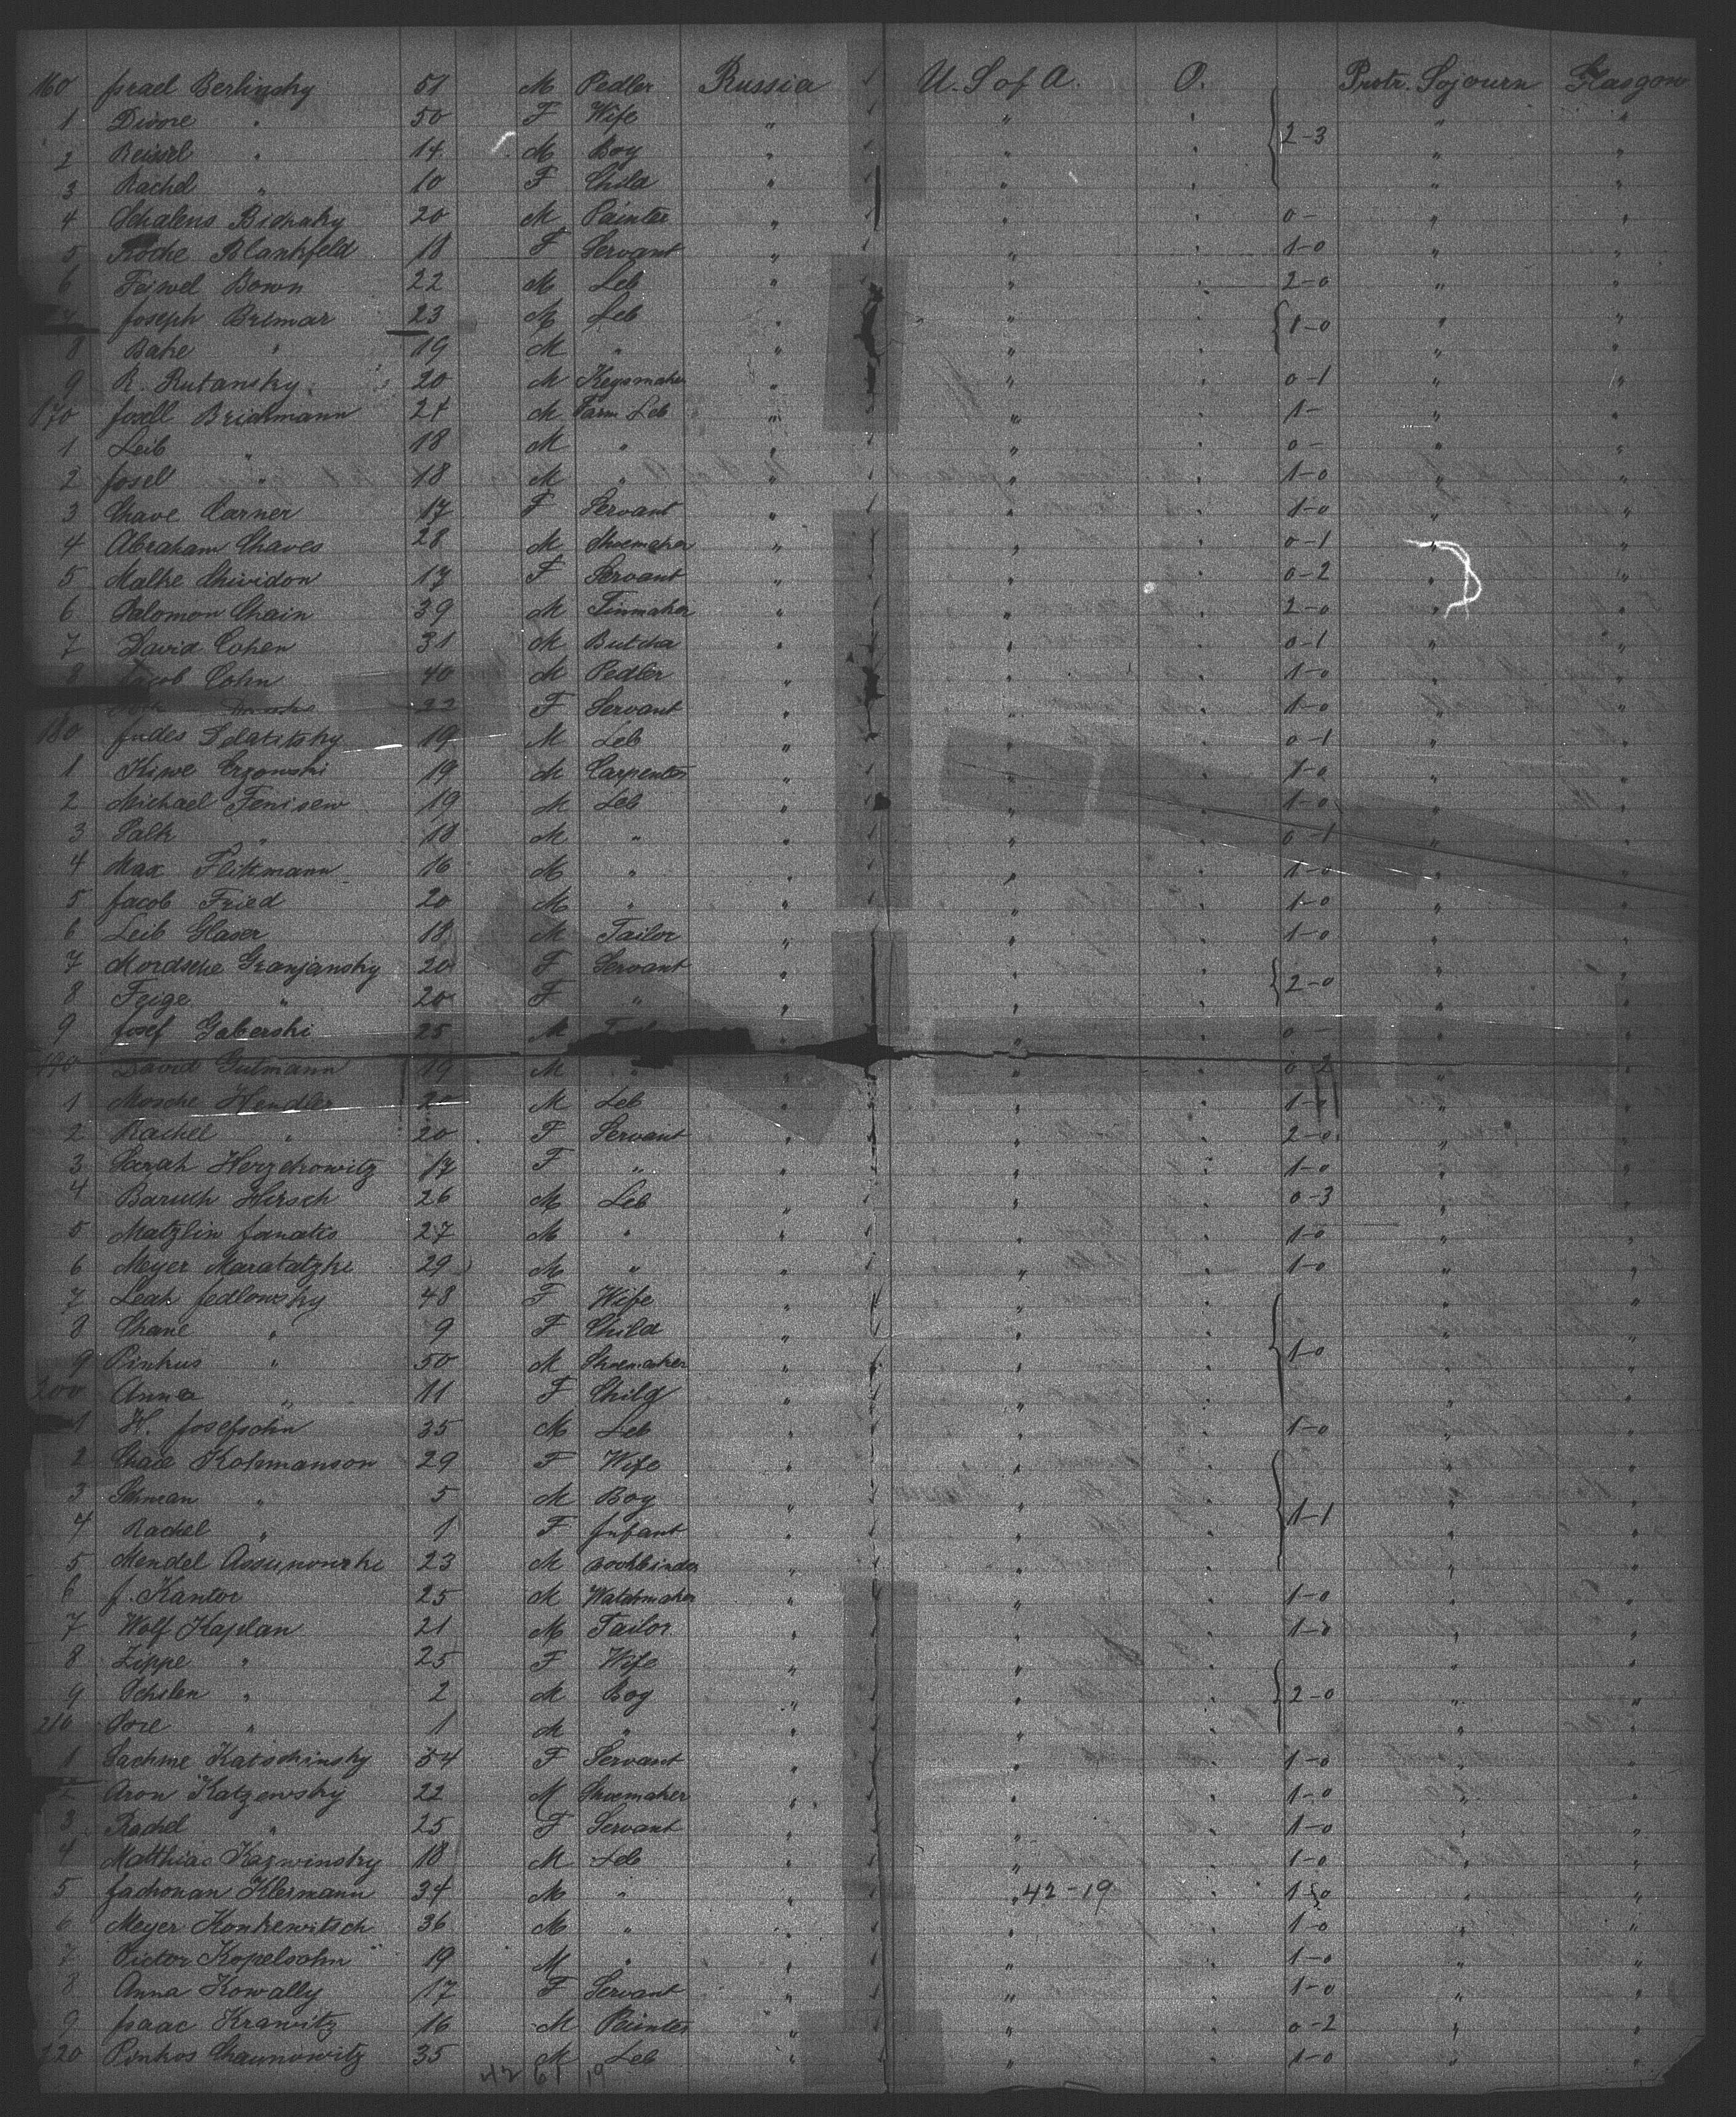 160 Israel Berlinsky 51 M Pedler Russia 1 U. S of A. O. Protr. Sojourn Glasgow
1 Divore " 50 F Wife " 1 " " 2-3 " "
2 Beissel " 14 M Boy " 1 " " " "
3 Rachel " 10 F Child " 1 " " " "
4 20 M Painter " 1 " " 0- " "
5 Roche Blankfeld 18 F Servant " 1 " " 1-0 " "
6 Feiwel Bown 22 M Leb " " " 2-0 " "
7 Joseph Bremar 23 M Leb " " " 1-0 " "
8 Bahe " 19 M " " " " " "
9 R. Rutansky 20 M Keysmaker " " " 0-1 " "
170 Josell Brickmann 24 M Farm Leb " " " 1- " "
1 Leib " 18 M " " 1 " " 0- " "
2 Josel " 18 M " " 1 " " 1-0 " "
3 Chave Carner 17 F Servant " 1 " " 1-0 " "
4 Abraham Chaves 28 M Shoemaker " 1 " " 0-1 " "
5 Malke Chividon 17 F Servant " 1 " " 0-2 " "
6 Salomon Chain 39 M Tinmaker " 1 " " 2-0 " "
7 David Cohen 31 M Butcha " 1 " " 0-1 " "
8 Jacob Cohn 40 M Pedler " " " 1-0 " "
22 F Servant " " " 1-0 " "
180 Judes 19 M Leb " " " 0-1 " "
1 Kiwe Crzowski 19 M Carpenter " 1 " " 1-0 " "
2 Michael Fenisew 19 M Leb " 1 " " 1-0 " "
3 Salk " 18 M " " 1 " " 0-1 " "
4 Max Flitzmann 16 M " " 1 " " 1-0 " "
5 Jacob Fried 20 M " " 1 " " 1-0 " "
6 Leib Glaser 18 M Tailor " 1 " " 1-0 " "
7 Mordsche Granjansky 20 F Servant " " " 2-0 " "
8 Feige " 20 F " " " " " "
9 Josef Gaberski 25 M " " " 0- " "
190 David Gutmann 19 M " " " " 0-2 " "
1 Mosche Hendler 20 M Leb " " " 1-0 " "
2 Rachel " 20 F Servant " 1 " " 2-0 " "
3 Sarah Herzchowitz 17 F " " 1 " " 1-0 " "
4 Baruch Hirsch 26 M Leb " 1 " " 0-3 " "
5 Matzlin Janatis 27 M " " 1 " " 1-0 " "
6 Meyer Maratatzki 29 M " " 1 " " 1-0 " "
7 Leah Jedlowsky 48 F Wife " 1 " " " "
8 Chane " 9 F Child " 1 " " " "
9 Pinkus " 50 M Shoemaker " 1 " " 1-0 " "
200 Anna " 11 F Child " 1 " " " "
1 H. Josefsohn 35 M Leb " 1 " " 1-0 " "
2 Chaie Kotsmanson 29 F Wife " 1 " " " "
3 Schman " 5 M Boy " 1 " " 1-1 " "
4 Rachel " 1 F Infant " 1 " " " "
5 Mendel 23 M Bookbinder " 1 " " " "
6 J. Kantor 25 M Watchmaker " 1 " " 1-0 " "
7 Wolf Kaplan 21 M Tailor " 1 " " 1-0 " "
8 Zippe " 25 F Wife " 1 " " " "
9 Schilen " 2 M Boy " 1 " " 2-0 " "
210 Sore " 1 M " " 1 " " " "
1 Sachme Katschinsky 54 F Servant " 1 " " 1-0 " "
2 Aron Katzewsky 22 M Shoemaker " 1 " " 1-0 " "
3 Rachel " 25 F Servant " 1 " " 1-0 " "
4 Matthias Kazwinsky 18 M Leb " 1 " " 1-0 " "
5 Jachonan Klermann 34 M " " 1 " 42-19 " 1-0 " "
6 Meyer Konkewitsch 36 M " " 1 " " 1-0 " "
7 Victor Kopelsohn 19 M " " 1 " " 1-0 " "
8 Anna Kowally 17 F Servant " 1 " " 1-0 " "
9 Isaac Krawitz 16 M Painter " 1 " " 0-2 " "
220 Pinkos Chaunowitz 35 M Leb " 1 " " 1-0 " "
42 61 19